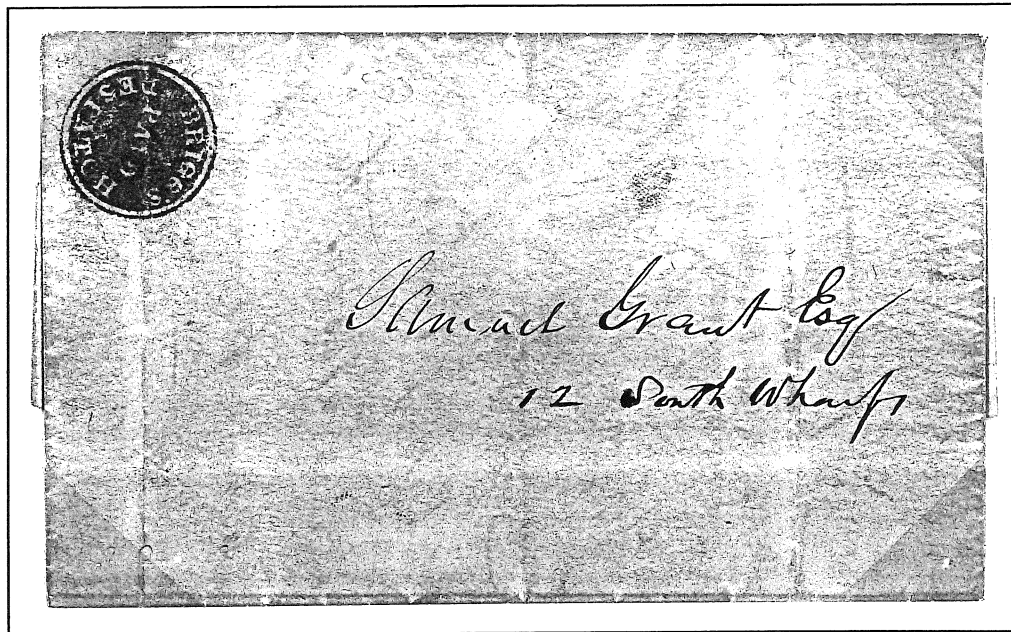 BRIGGS
DESPATCH
Samuel Grant Esq
12 South Wharfs